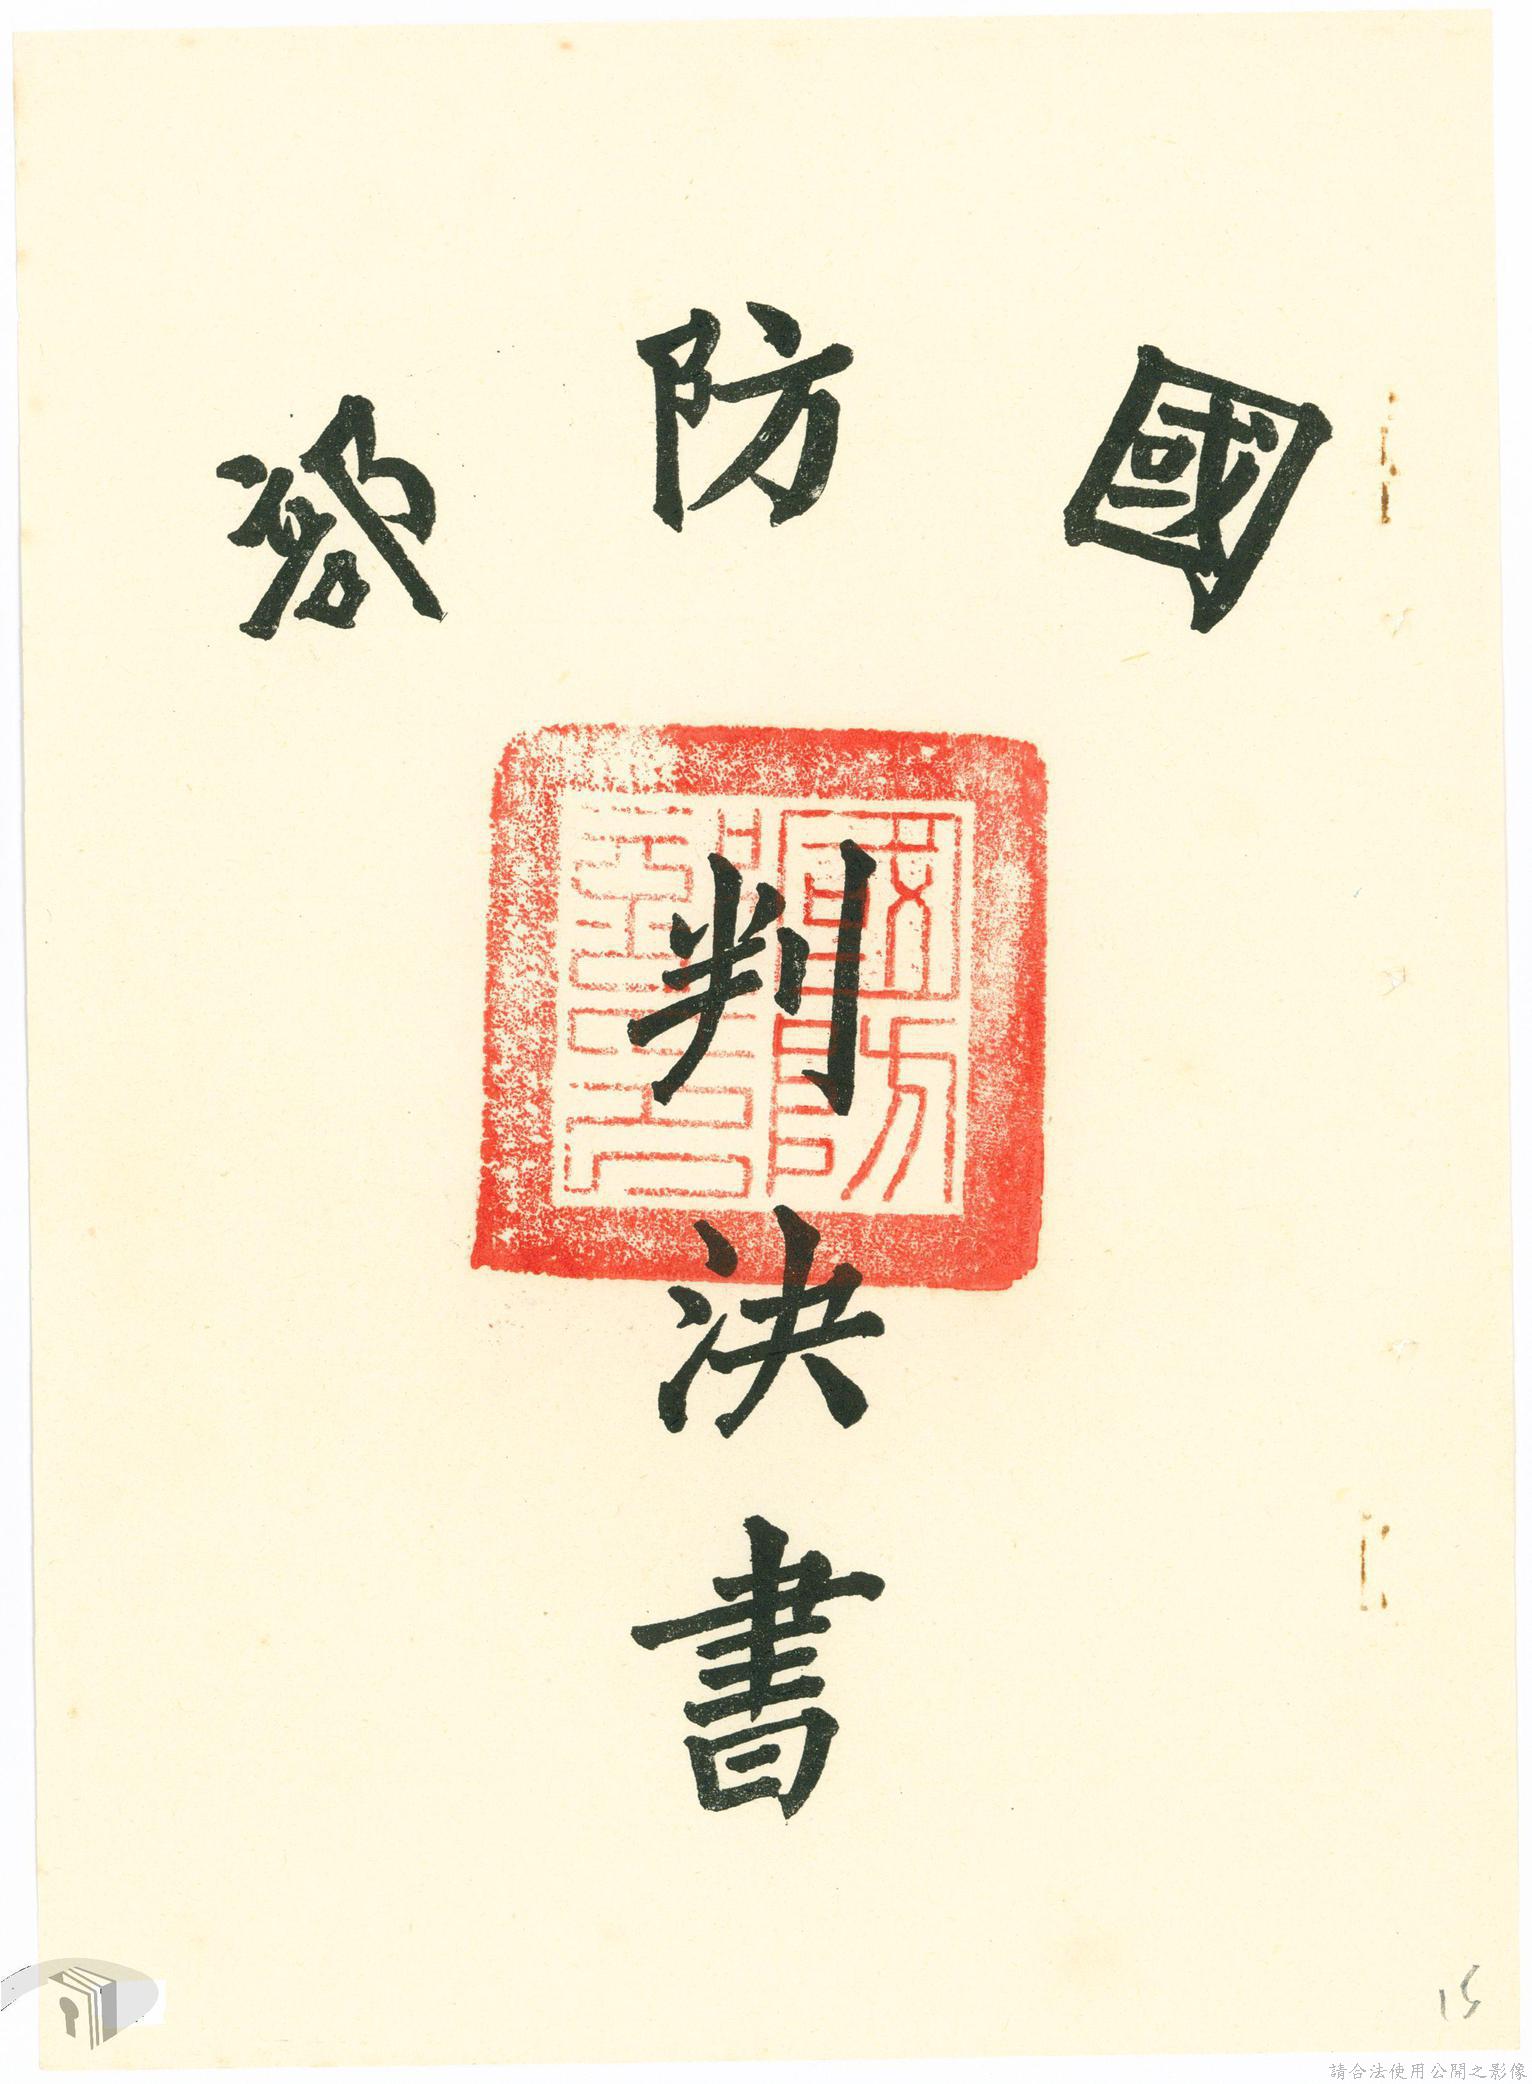 國防部
判決書
國防部印
15
請合法使用公開之影像